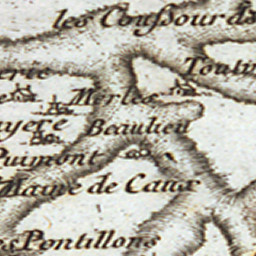 les Coussourds
Toulin
erie
Merles
ayere
Beaulieu
Puimont
Maire de Caux
es Pontillons